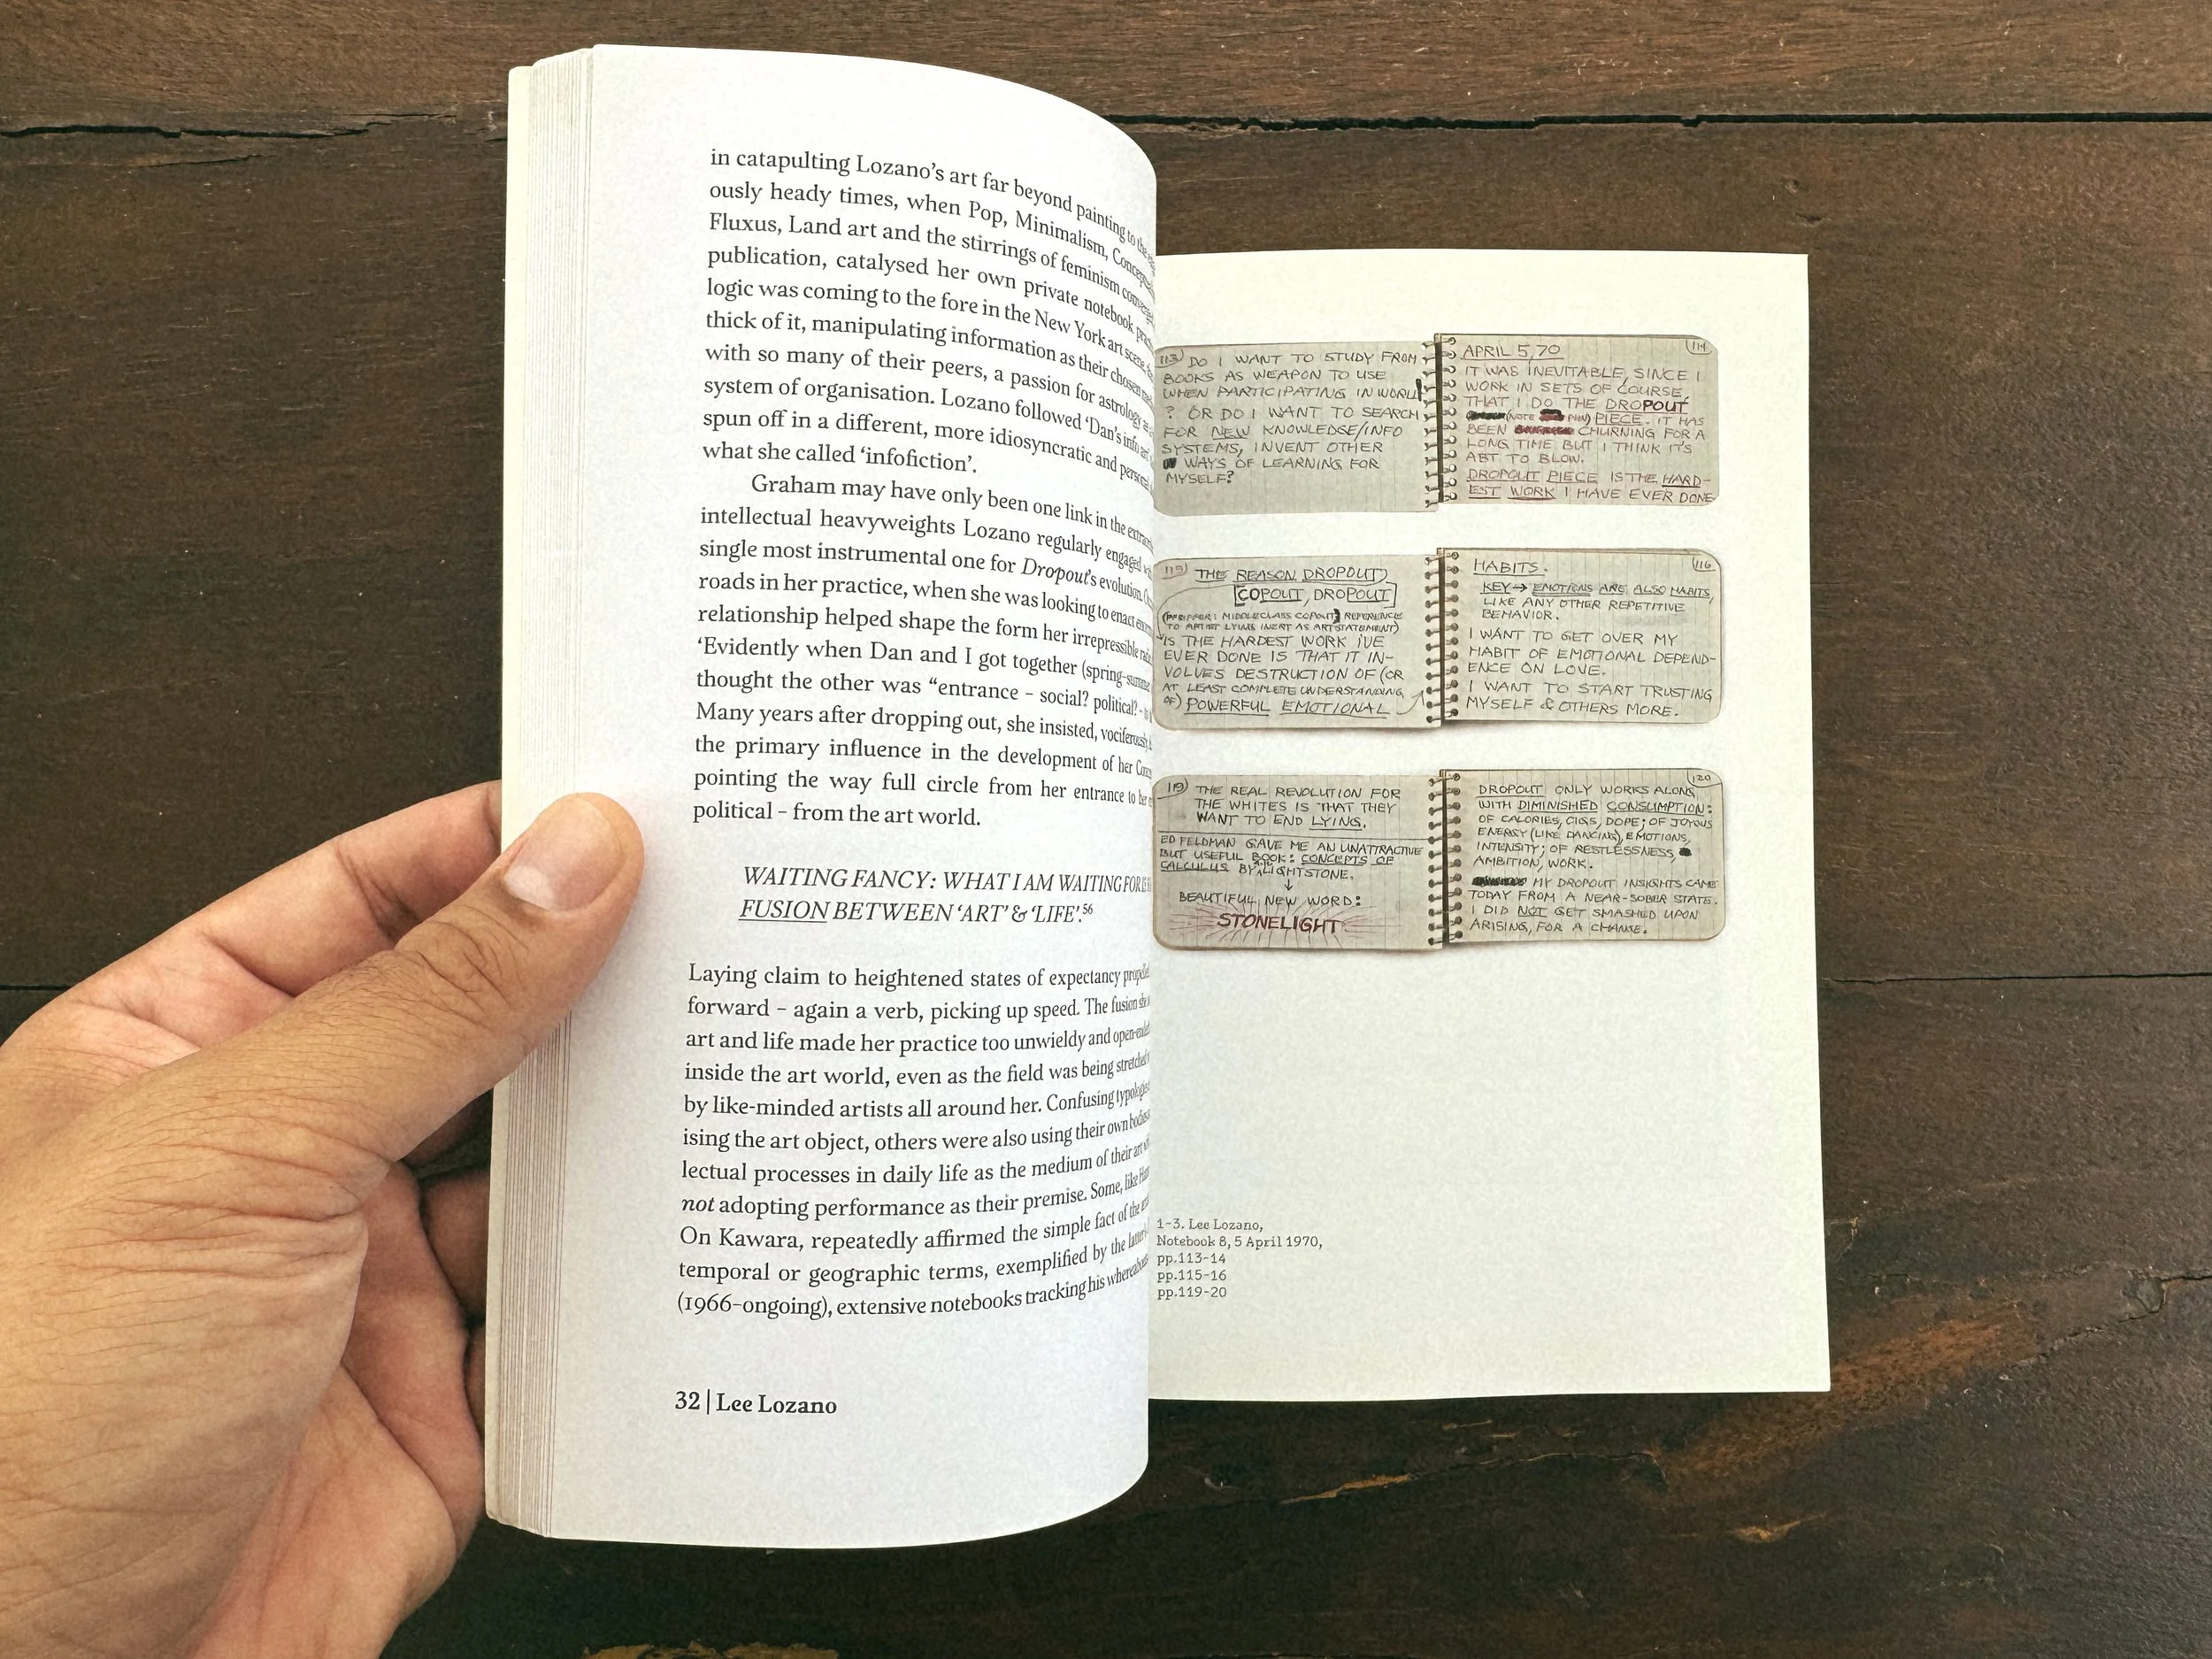 in catapulting Lozano's art far beyond painting to the
ously heady times, when Pop, Minimalism,
Fluxus, Land art and the stirrings of feminism
publication, catalysed her own private notebook
logic was coming to the fore in the New York art scene,
thick of it, manipulating information as their chosen
with so many of their peers, a passion for astrology
system of organisation. Lozano followed 'Dan's info
spun off in a different, more idiosyncratic and
what she called 'infofiction'.
Graham may have only been one link in the
intellectual heavyweights Lozano regularly engaged
single most instrumental one for Dropout's evolution.
roads in her practice, when she was looking to enact
relationship helped shape the form her irrepressible
'Evidently when Dan and I got together
thought the other was "entrance – social? political? –
Many years after dropping out, she insisted, vociferously,
the primary influence in the development of her
pointing the way full circle from her entrance to her
political – from the art world.
WAITING FANCY: WHAT I AM WAITING FOR
FUSION BETWEEN 'ART' & 'LIFE'.56
Laying claim to heightened states of expectancy
forward – again a verb, picking up speed. The fusion
art and life made her practice too unwieldy and
inside the art world, even as the field was being stretched
by like-minded artists all around her. Confusing
ising the art object, others were also using their own
lectual processes in daily life as the medium of their art
not adopting performance as their premise. Some, like
On Kawara, repeatedly affirmed the simple fact of the
temporal or geographic terms, exemplified by the
(1966–ongoing), extensive notebooks tracking his
32 | Lee Lozano
113 DO I WANT TO STUDY FROM
BOOKS AS WEAPON TO USE
WHEN PARTICIPATING IN WORLD
? OR DO I WANT TO SEARCH
FOR NEW KNOWLEDGE/INFO
SYSTEMS, INVENT OTHER
WAYS OF LEARNING FOR
MYSELF?
114
APRIL 5, 70
IT WAS INEVITABLE, SINCE I
WORK IN SETS OF COURSE,
THAT I DO THE DROPOUT
(NOTE PUN) PIECE. IT HAS
BEEN CHURNING FOR A
LONG TIME BUT I THINK IT'S
ABT TO BLOW.
DROPOUT PIECE IS THE HARD-
EST WORK I HAVE EVER DONE
115 THE REASON DROPOUT,
COPOUT, DROPOUT
MIDDLECLASS COPOUT REFERENCE
TO ARTIST LYING INERT AS ARTSTATEMENT)
IS THE HARDEST WORK I'VE
EVER DONE IS THAT IT IN-
VOLVES DESTRUCTION OF (OR
AT LEAST COMPLETE UNDERSTANDING
OF) POWERFUL EMOTIONAL
116
HABITS.
KEY → EMOTIONS ARE ALSO HABITS,
LIKE ANY OTHER REPETITIVE
BEHAVIOR.
I WANT TO GET OVER MY
HABIT OF EMOTIONAL DEPEND-
ENCE ON LOVE.
I WANT TO START TRUSTING
MYSELF & OTHERS MORE.
119 THE REAL REVOLUTION FOR
THE WHITES IS THAT THEY
WANT TO END LYING.
ED FELDMAN GAVE ME AN UNATTRACTIVE
BUT USEFUL BOOK: CONCEPTS OF
CALCULUS BY LIGHTSTONE.
↓
BEAUTIFUL NEW WORD:
STONELIGHT
120
DROPOUT ONLY WORKS ALONG
WITH DIMINISHED CONSUMPTION:
OF CALORIES, CIGS, DOPE; OF JOYOUS
ENERGY (LIKE DANCING), EMOTIONS,
INTENSITY; OF RESTLESSNESS,
AMBITION, WORK.
MY DROPOUT INSIGHTS CAME
TODAY FROM A NEAR-SOBER STATE.
I DID NOT GET SMASHED UPON
ARISING, FOR A CHANGE.
1-3. Lee Lozano,
Notebook 8, 5 April 1970,
pp.113-14
pp.115-16
pp.119-20